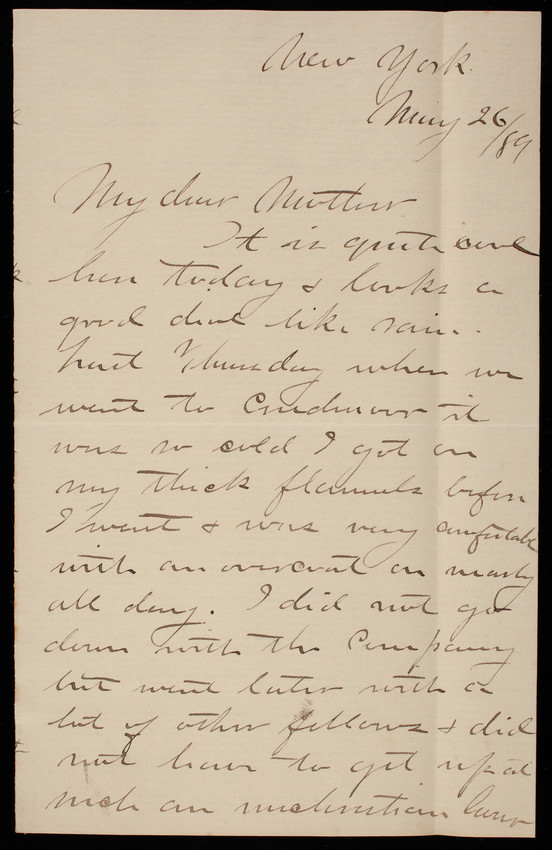 New York.
May 26/89
My dear Mother
It is quite cool
here today & looks a
good deal like rain.
Last Thursday when we
went to it
was so cold I got on
my thick flannels before
I went & was very comfortable
with an overcoat on nearly
all day. I did not go
down with the Company
but went later with a
lot of other fellows & did
not have to get up at
such an hour